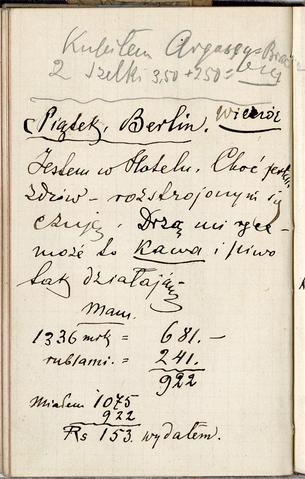 Kupiłem
2 szelki 3,50 + 250 =
Piątek, Berlin. Wieczór
Jestem w Hotelu. Choć jestem
zdrów – rozstrojonym się
czuję. Drżą mi ręce
może to Kawa i piwo
tak działają
Mam.
1336 mrk = 681.–
rublami. = 241.
922
Miałem 1075
922
Rs 153. wydałem.